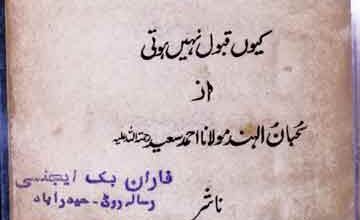 کیوں قبول نہیں ہوتی
از
سحبان الہند مولانا احمد سعید رحمۃ اللہ علیہ
فاران بک ایجنسی
رسالہ روڈ - حیدرآباد
ناشر